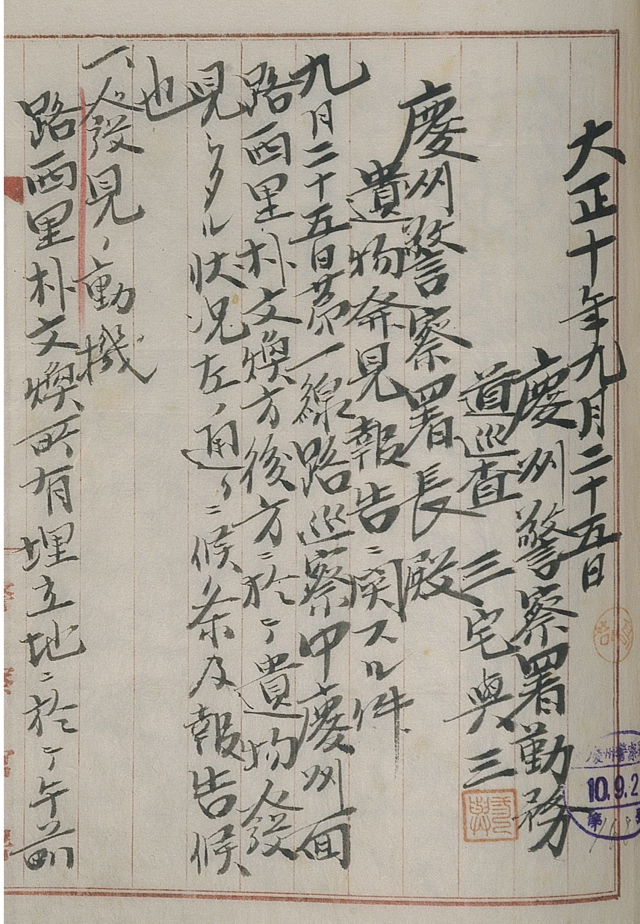 大正十年九月二十五日
慶州警察署勤務
道巡査 三宅與三
慶州警察署長殿
遺物発見報告ニ関スル件
九月二十五日第一線路巡察中慶州面
路西里朴文煥方後方ニ於テ遺物人発
見シタル状况左ノ通リニ候条及報告候
也
一、人發見ノ動機
路西里朴文煥所有埋立地ニ於テ午前
慶州警察
10.9.2
第